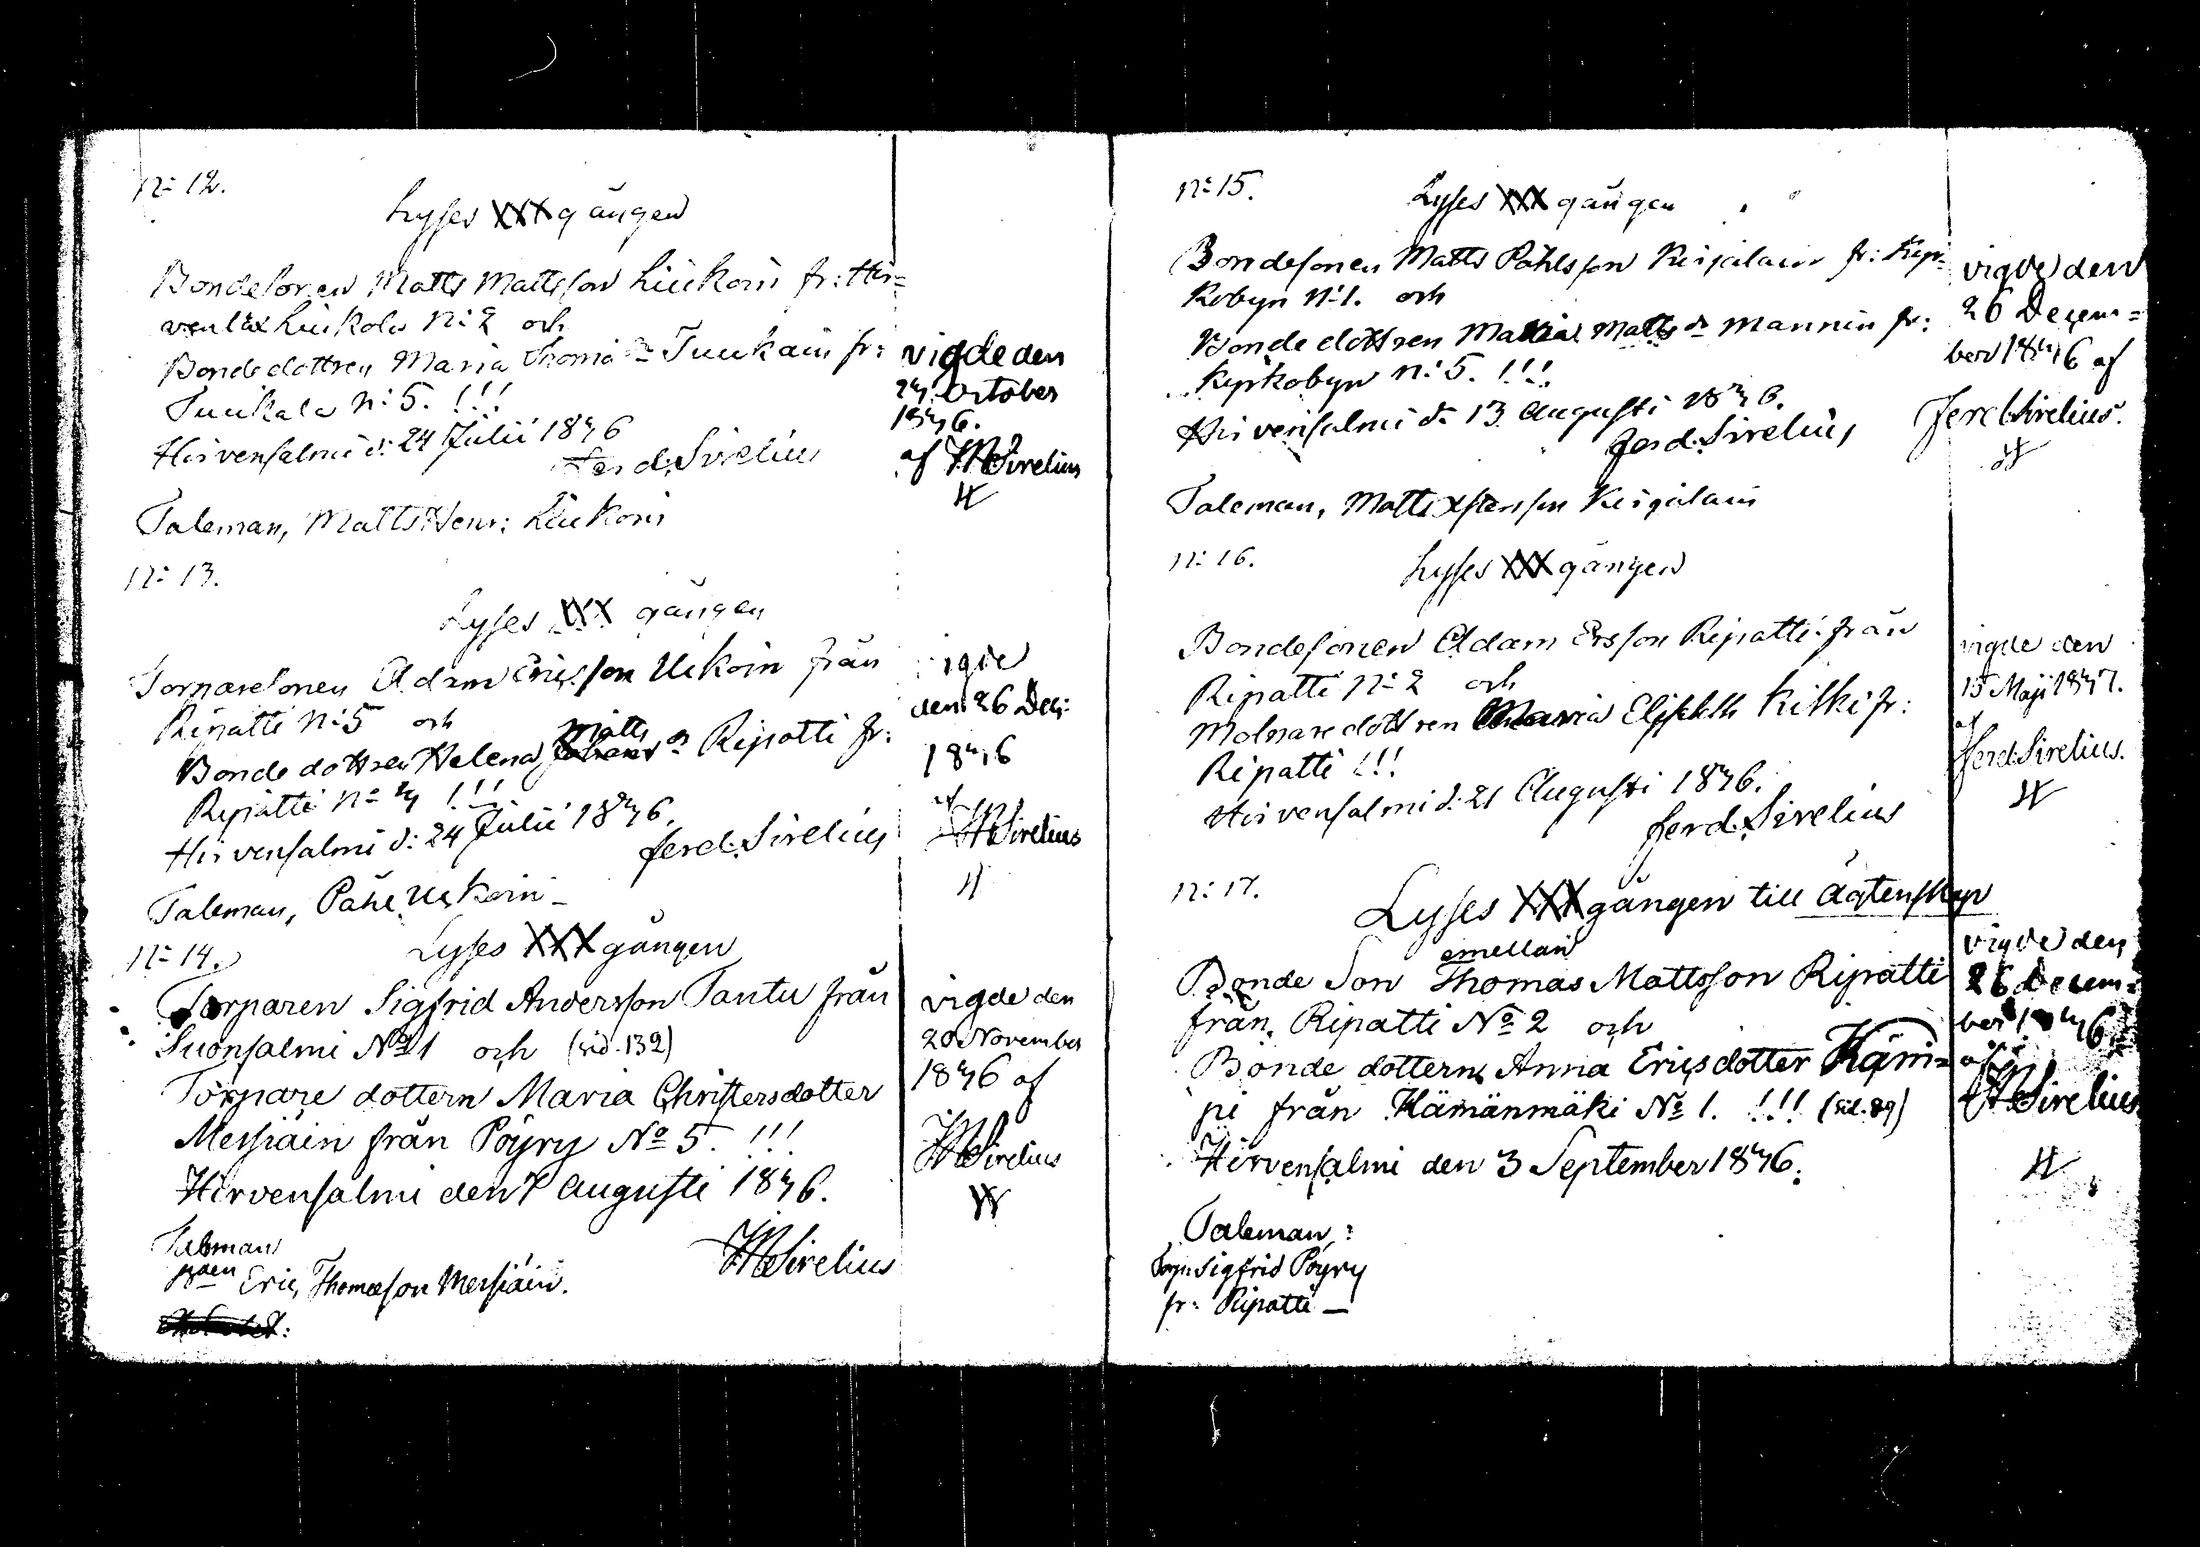 n: 12.
Lyses XXX gången
Bondesonen Matts Mattsson Liukoin fr: Hir=
venlax Liukola n: 2 och
Bondedottren Maria Thoma dr Tuukain fr:
Tuukala n: 5. !!!
Hirvensalmi d: 24 Julii 1846
Ferd: Sirelius
vigde den
24 October
1846.
af Sirelius
Taleman, Matts Henr: Liukoin
n: 13.
Lyses XXX gången
Torparesonen Adam Ericsson Ukkoin från
Ripatti n: 5 och
Matts
Bondedottren Helena dr Ripatti fr:
Ripatti no 4 !!!
Hirvensalmi d: 24 Julii 1846.
Ferd: Sirelius
vigde
den 26 Dec:
1846
af
Sirelius
Taleman, Påhl Ukkoin
n: 14.
Lyses XXX gången
Torparen Sigfrid Andersson Tantu från
Suonsalmi No 1 och (sid. 132)
Torpare dottern Maria Christersdotter
Messiäin från Pöyry No 5. !!!
Hirvensalmi den 7 Augusti 1846.
Sirelius
vigde den
20 November
1846 af
Sirelius
Taleman
Eric Thomasson Messiäin.
n: 15.
Lyses XXX gången
Bondesonen Matts Påhlsson Kirjalain fr: Kyr=
kobyn n: 1. och
Bondedottren Maria Matts dr Mannin fr:
Kyrkobyn n: 5. !!!
Hirvensalmi d. 13 Augusti 1846.
Ferd: Sirelius
vigde den
26 Decem=
ber 1846 af
Ferd Sirelius.
Taleman, Matts Kirjalain
n: 16.
Lyses XXX gången
Bondesonen Adam Ersson Ripatti från
Ripatti n: 2 och
Molnaredottren Maria Elisabeth Kilki fr:
Ripatti !!!
Hirvensalmi d: 21 Augusti 1846.
Ferd: Sirelius
vigde den
15 Maji 1847.
af
Ferd: Sirelius.
n: 17.
Lyses XXX gången till ägtenskap
emellan
Bonde Son Thomas Mattsson Ripatti
från Ripatti No 2 och
Bonde dottern Anna Ericsdotter Häm=
pi från Hämänmäki No 1. !!! (sid. 89)
Hirvensalmi den 3 September 1846.
vigde den
26 Decem=
ber 1846
af
Sirelius
Taleman:
Sigfrid Pöyry
fr: Ripatti